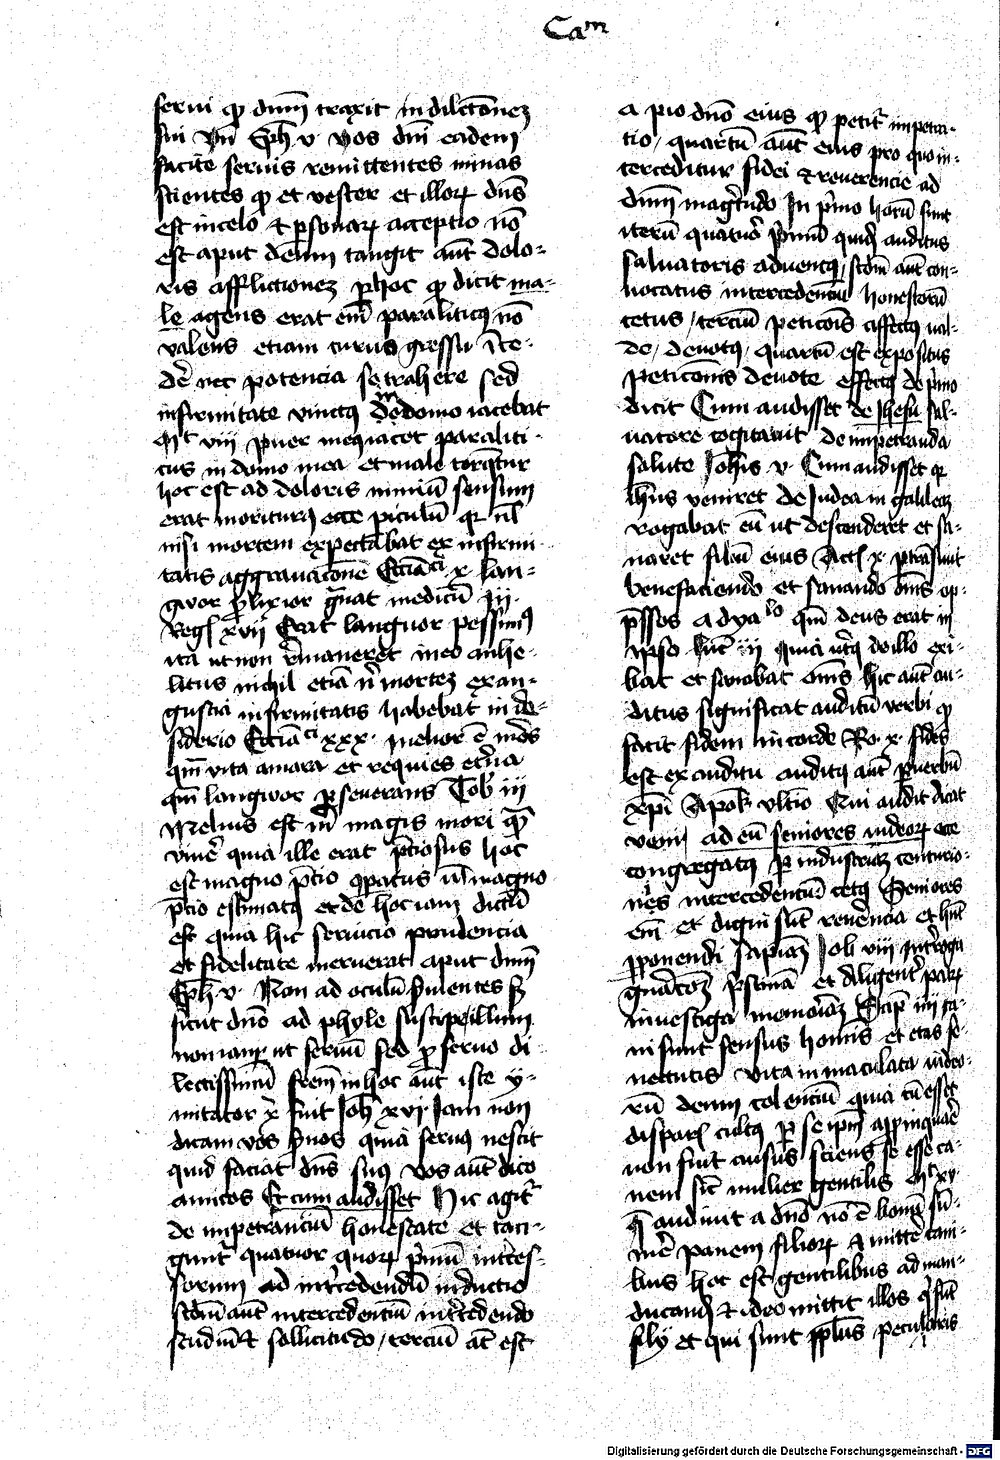 Cam
serui qd dnm traxit in dilectionez
sui Vn Eph v vos dni eadem
facite seruis remittentes minas
scientes qd et vester et illorum dns
est in celo et personarum acceptio no
est aput deum tangit aut dolo-
ris afflictionez per hoc qd dicit ma-
le agens erat em paraliticus no
valens etiam cuius gressu
nec potencia se trahere sed
infirmitate vinctus in domo iacebat
Mt viii puer meus iacet paraliti-
cus in domo mea et male torquetur
hoc est ad doloris nimiu sensum
erat moriturus ecce piculu qr nil
nisi mortem expectabat ex infirmi-
tatis aggrauacione Ecciaci x lan-
gwor plixior grauat medicu iii
Reg xvii Erat languor pessimus
ita ut non remaneret in eo anhe-
litus nichil etia mortez exan-
gustia infirmitatis habebat in de-
siderio Ecciaci xxx melior e mors
qm vita amara et requies eterna
qm langwor perseuerans Tob iii
Melius est magis mori qm
viuere quia ille erat preciosus hoc
est magno precio comparatus magno
precio estimatus et de hoc iam dictu
est quia hic seruicio prudencia
et fidelitate meruerat aput dnm
Eph v Non ad oculu seruientes
sicut dno ad phyle suscipe illum
non iam ut seruu sed pro seruo di-
lectissimu frem in hoc aut iste y-
mitator x fuit Joh xvi Iam non
dicam vos seruos quia seruus nescit
quid faciat dns suus vos aut dico
amicos Et cum audisset Hic agitur
de impetranciu honestate et tan-
guntur quatuor quorum primu interces-
sorum ad intercedendu inductio
scdm aut intercedentiu intercedendo
studiu et sollicitudo / terciu at est
a pio dno eius qd petitur impetra-
tio / quartu aut eius pro quo in-
terceditur fidei et reuerencie ad
dnm magnitudo In primo horu sunt
iteru quatuor primu quidem auditus
saluatoris aduentus / scdm aut con-
uocatus intercedentiu honestoru
cetus / terciu peticois affectus val-
de / deuotus / quartu est expositus
peticonis deuote effectus de primo
dicit Cum audisset de Jhesu sal-
uatore cogitauit de impetranda
salute Johis v Cum audisset qr
Jhus veniret de Judea in galileaz
rogabat eu ut descenderet et sa-
naret filiu eius Act x pertransiuit
benefaciendo et sanando oms op-
pressos a dyabolo qm deus erat in
ipso luc iii quia virtus de illo exi-
bat et sanabat oms Hic aut au-
ditus significat auditu verbi qd
facit fidem in corde Ro x fides
est ex auditu auditus aut per verbu
xpi Apok vltio Qui audit dicat
veni ad eu seniores iudeorum ecce
congregatus per industriaz centurio-
nis intercedentiu cetus Seniores
em et digni sut reuencia et hnt
proponendi sapiaz Job viii interroga
gnacoez pstina et diligent patrum
inuestiga memoriaz Sap iiii ca-
ni sunt sensus homis et etas se-
nectutis vita inmaculata iudeo-
ru deum colenciu quia cu esset
disparis cultus per se ipm appinquare
non fuit ausus sciens se esse ca-
nem sicut mulier gentilis Mt xv
que audiuit a dno no e bonu su-
mere panem filiorum et mittere cani-
bus hoc est gentilibus ad man-
ducandum et ideo mittit illos qui sut
filij et qui sunt ppulus peculiaris
Digitalisierung gefördert durch die Deutsche Forschungsgemeinschaft - DFG